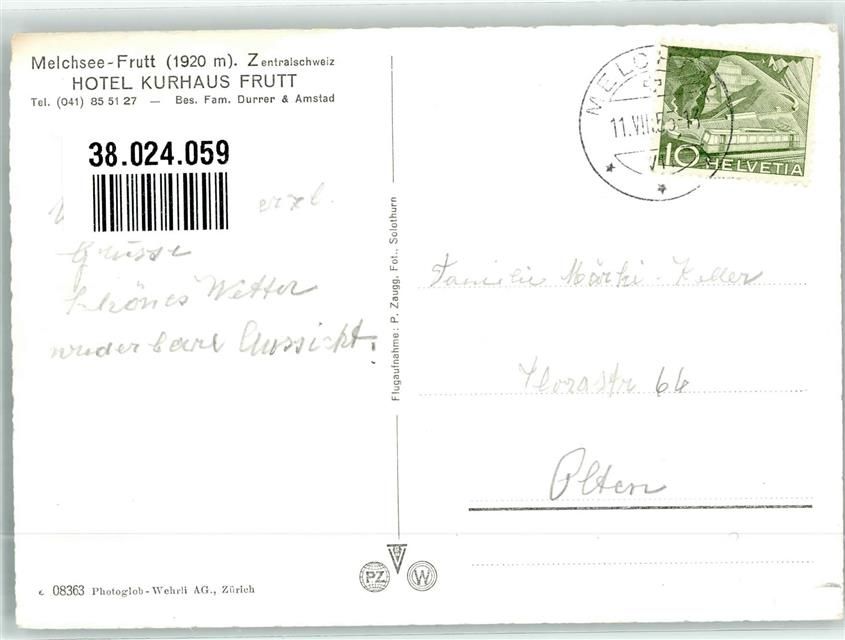 Melchsee-Frutt (1920 m). Zentralschweiz
HOTEL KURHAUS FRUTT
Tel. (041) 85 51 27 — Bes. Fam. Durrer & Amstad
38.024.059
erzl.
Grüsse
Schönes Wetter
wuderbare Aussicht.
Flugaufnahme: P. Zaugg, Fot., Solothurn
MELCH
11.VII.5
10 HELVETIA
Familie Märki-Keller
Florastr 66
Olten
PZ
W
08363 Photoglob-Wehrli AG., Zürich